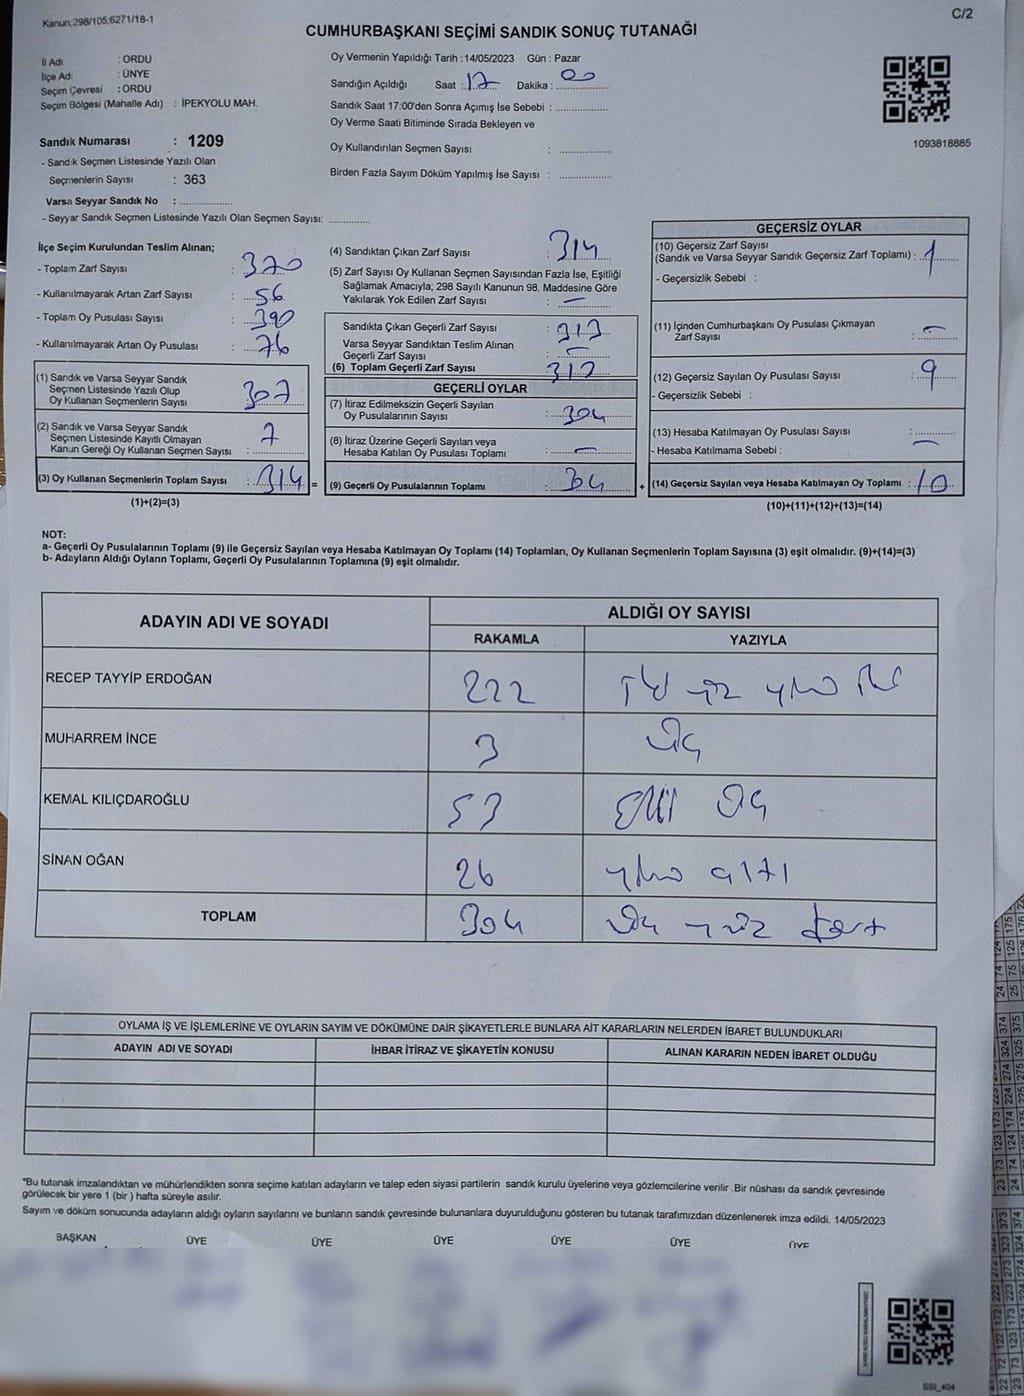 Kanun;298/105;6271/18-1
C/2
CUMHURBAŞKANI SEÇİMİ SANDIK SONUÇ TUTANAĞI
İl Adı : ORDU
İlçe Adı : ÜNYE
Seçim Çevresi : ORDU
Seçim Bölgesi (Mahalle Adı) : İPEKYOLU MAH.
Sandık Numarası : 1209
- Sandık Seçmen Listesinde Yazılı Olan
Seçmenlerin Sayısı : 363
Varsa Seyyar Sandık No :
- Seyyar Sandık Seçmen Listesinde Yazılı Olan Seçmen Sayısı:
Oy Vermenin Yapıldığı Tarih :14/05/2023 Gün : Pazar
Sandığın Açıldığı Saat : 17 Dakika : 00
Sandık Saat 17:00'den Sonra Açımış İse Sebebi :
Oy Verme Saati Bitiminde Sırada Bekleyen ve
Oy Kullandırılan Seçmen Sayısı :
Birden Fazla Sayım Döküm Yapılmış İse Sayısı :
1093818885
İlçe Seçim Kurulundan Teslim Alınan;
- Toplam Zarf Sayısı : 370
- Kullanılmayarak Artan Zarf Sayısı : 56
- Toplam Oy Pusulası Sayısı : 390
- Kullanılmayarak Artan Oy Pusulası : 76
(1) Sandık ve Varsa Seyyar Sandık
Seçmen Listesinde Yazılı Olup
Oy Kullanan Seçmenlerin Sayısı : 307
(2) Sandık ve Varsa Seyyar Sandık
Seçmen Listesinde Kayıtlı Olmayan
Kanun Gereği Oy Kullanan Seçmen Sayısı : 7
(3) Oy Kullanan Seçmenlerin Toplam Sayısı : 314 =
(1)+(2)=(3)
(4) Sandıktan Çıkan Zarf Sayısı : 314
(5) Zarf Sayısı Oy Kullanan Seçmen Sayısından Fazla İse, Eşitliği
Sağlamak Amacıyla; 298 Sayılı Kanunun 98. Maddesine Göre
Yakılarak Yok Edilen Zarf Sayısı : —
Sandıkta Çıkan Geçerli Zarf Sayısı : 313
Varsa Seyyar Sandıktan Teslim Alınan
Geçerli Zarf Sayısı : —
(6) Toplam Geçerli Zarf Sayısı : 313
GEÇERLİ OYLAR
(7) İtiraz Edilmeksizin Geçerli Sayılan
Oy Pusulalarının Sayısı : 304
(8) İtiraz Üzerine Geçerli Sayılan veya
Hesaba Katılan Oy Pusulası Toplamı : —
(9) Geçerli Oy Pusulalarının Toplamı : 304 +
GEÇERSİZ OYLAR
(10) Geçersiz Zarf Sayısı
(Sandık ve Varsa Seyyar Sandık Geçersiz Zarf Toplamı) : 1
- Geçersizlik Sebebi :
(11) İçinden Cumhurbaşkanı Oy Pusulası Çıkmayan
Zarf Sayısı : —
(12) Geçersiz Sayılan Oy Pusulası Sayısı : 9
- Geçersizlik Sebebi :
(13) Hesaba Katılmayan Oy Pusulası Sayısı : —
- Hesaba Katılmama Sebebi :
(14) Geçersiz Sayılan veya Hesaba Katılmayan Oy Toplamı : 10
(10)+(11)+(12)+(13)=(14)
NOT:
a- Geçerli Oy Pusulalarının Toplamı (9) ile Geçersiz Sayılan veya Hesaba Katılmayan Oy Toplamı (14) Toplamları, Oy Kullanan Seçmenlerin Toplam Sayısına (3) eşit olmalıdır. (9)+(14)=(3)
b- Adayların Aldığı Oyların Toplamı, Geçerli Oy Pusulalarının Toplamına (9) eşit olmalıdır.
ADAYIN ADI VE SOYADI
ALDIĞI OY SAYISI
RAKAMLA YAZIYLA
RECEP TAYYİP ERDOĞAN 222 iki yüz yirmi iki
MUHARREM İNCE 3 üç
KEMAL KILIÇDAROĞLU 53 Elli üç
SİNAN OĞAN 26 yirmi altı
TOPLAM 304 üç yüz dört
OYLAMA İŞ VE İŞLEMLERİNE VE OYLARIN SAYIM VE DÖKÜMÜNE DAİR ŞİKAYETLERLE BUNLARA AİT KARARLARIN NELERDEN İBARET BULUNDUKLARI
ADAYIN ADI VE SOYADI İHBAR İTİRAZ VE ŞİKAYETİN KONUSU ALINAN KARARIN NEDEN İBARET OLDUĞU
*Bu tutanak imzalandıktan ve mühürlendikten sonra seçime katılan adayların ve talep eden siyasi partilerin sandık kurulu üyelerine veya gözlemcilerine verilir .Bir nüshası da sandık çevresinde
görülecek bir yere 1 (bir ) hafta süreyle asılır.
Sayım ve döküm sonucunda adayların aldığı oyların sayılarını ve bunların sandık çevresinde bulunanlara duyurulduğunu gösteren bu tutanak tarafımızdan düzenlenerek imza edildi. 14/05/2023
BAŞKAN ÜYE ÜYE ÜYE ÜYE ÜYE ÜYE
SSI_404